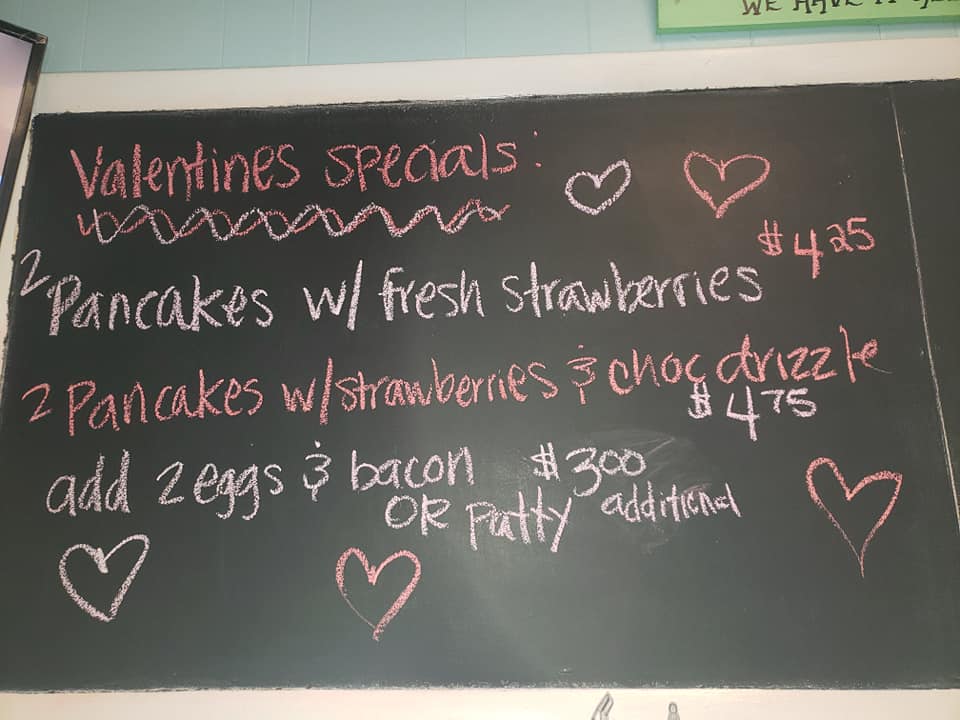 WE HAVE
Valentines specials:
$4.25
2 Pancakes w/ fresh strawberries
2 Pancakes w/strawberries & choc drizzle
$4.75
add 2 eggs & bacon $3.00
OR patty additional